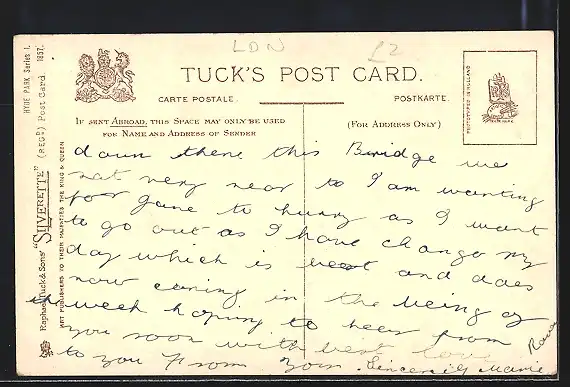 LDN
£2
TUCK'S POST CARD.
CARTE POSTALE.
POSTKARTE.
IF SENT ABROAD, THIS SPACE MAY ONLY BE USED
FOR NAME AND ADDRESS OF SENDER
(FOR ADDRESS ONLY)
HYDE PARK Series I. 1857.
Raphael Tuck & Sons' "SILVERETTE" (REGD) Post Card
ART PUBLISHERS TO THEIR MAJESTIES THE KING & QUEEN
down there this Bridge we
not very near to I am wanting
for June to hurry as I want
to go out as I have change my
day which is and does
now coming in the
the week hoping to heer from
you soon with best love
to you From Yours Sincerely Marie